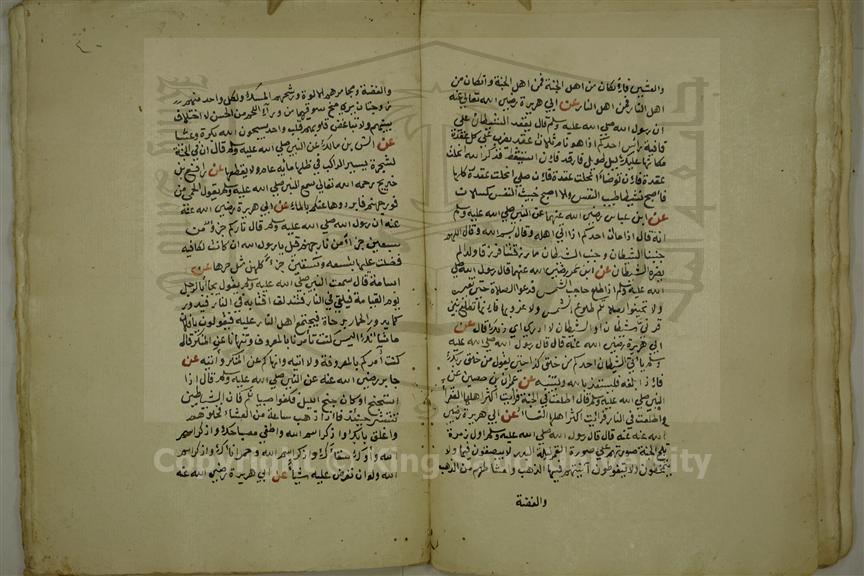 والعشي فان كان من اهل الجنة فمن اهل الجنة وان كان من
اهل النار فمن اهل النار عن ابي هريرة رضي الله تعالى عنه
ان رسول الله صلى الله عليه وسلم قال يعقد الشيطان على
قافية راس احدكم اذا هو نام ثلاث عقد يضرب على كل عقدة
مكانها عليك ليل طويل فارقد فان استيقظ فذكر الله انحلت
عقدة فان توضا انحلت عقدة فان صلى انحلت عقده كلها
فاصبح نشيطا طيب النفس والا اصبح خبيث النفس كسلان
عن ابن عباس رضي الله عنهما عن النبي صلى الله عليه وسلم
انه قال اما ان احدكم اذا اتى اهله وقال بسم الله وقال اللهم
جنبنا الشيطان وجنب الشيطان ما رزقتنا فرزقا ولدا لم
يضره الشيطان عن ابن عمر رضي الله عنهما قال رسول الله صلى
الله عليه وسلم اذا طلع حاجب الشمس فدعوا الصلاة حتى تبرز
ولا تحينوا بصلاتكم طلوع الشمس ولا غروبها فانها تطلع بين
قرني شيطان او الشيطان لا ادري اي ذلك قال عن
ابي هريرة رضي الله عنه قال قال رسول الله صلى الله عليه
وسلم ياتي الشيطان احدكم من خلق كذا حتى يقول من خلق ربك
فاذا بلغه فليستعذ بالله ولينته عن عمران بن حصين عن
النبي صلى الله عليه وسلم قال اطلعت في الجنة فرايت اكثر اهلها الفقرا
واطلعت في النار فرايت اكثر اهلها النسا عن ابي هريرة رضي
الله عنه قال قال رسول الله صلى الله عليه وسلم اول زمرة
تلج الجنة صورتهم على صورة القمر ليلة البدر لا يبصقون فيها ولا
يتمخطون ولا يتغوطون آنيتهم فيها الذهب وامشاطهم من الذهب
والفضة
والفضة ومجامرهم الالوة ورشحهم المسك ولكل واحد منهم
زوجتان يرى مخ سوقهما من وراء اللحم من الحسن لا اختلاف
بينهم ولا تباغض قلوبهم قلب واحد يسبحون الله بكرة وعشيا
عن انس بن مالك عن النبي صلى الله عليه وسلم قال ان في الجنة
لشجرة يسير الراكب في ظلها مائة عام لا يقطعها عن رافع بن
خديج رحمه الله تعالى سمع النبي صلى الله عليه وسلم يقول الحمى من
فور جهنم فابردوها عنكم بالماء عن ابي هريرة رضي الله عنه
ان رسول الله صلى الله عليه وسلم قال ناركم جزؤ من
سبعين جزأ من نار جهنم قيل يا رسول الله ان كانت لكافية
فضلت عليها بتسعة وستين جزأ كلهن مثل حرها عن
اسامة قال سمعت النبي صلى الله عليه وسلم يقول يجاء بالرجل
يوم القيامة فيلقى في النار فتندلق اقتابه في النار فيدور
كما يدور الحمار برحاه فيجتمع اهل النار عليه فيقولون يا فلان
ما شانك اليس كنت تامرنا بالمعروف وتنهانا عن المنكر قال
كنت آمركم بالمعروف ولا اتيه وانهاكم عن المنكر وآتيه عن
جابر رضي الله عنه عن النبي صلى الله عليه وسلم قال اذا
استجنح او كان جنح الليل فكفوا صبيانكم فان الشياطين
تنتشر حينئذ فاذا ذهب ساعة من العشاء فخلوهم
واغلق بابك واذكر اسم الله واطفي مصباحك واذكر اسم
الله واوك سقاءك واذكر اسم الله وخمر اناءك واذكر اسم
الله ولو ان تعرض عليه شيئا عن ابي هريرة رضي الله عنه